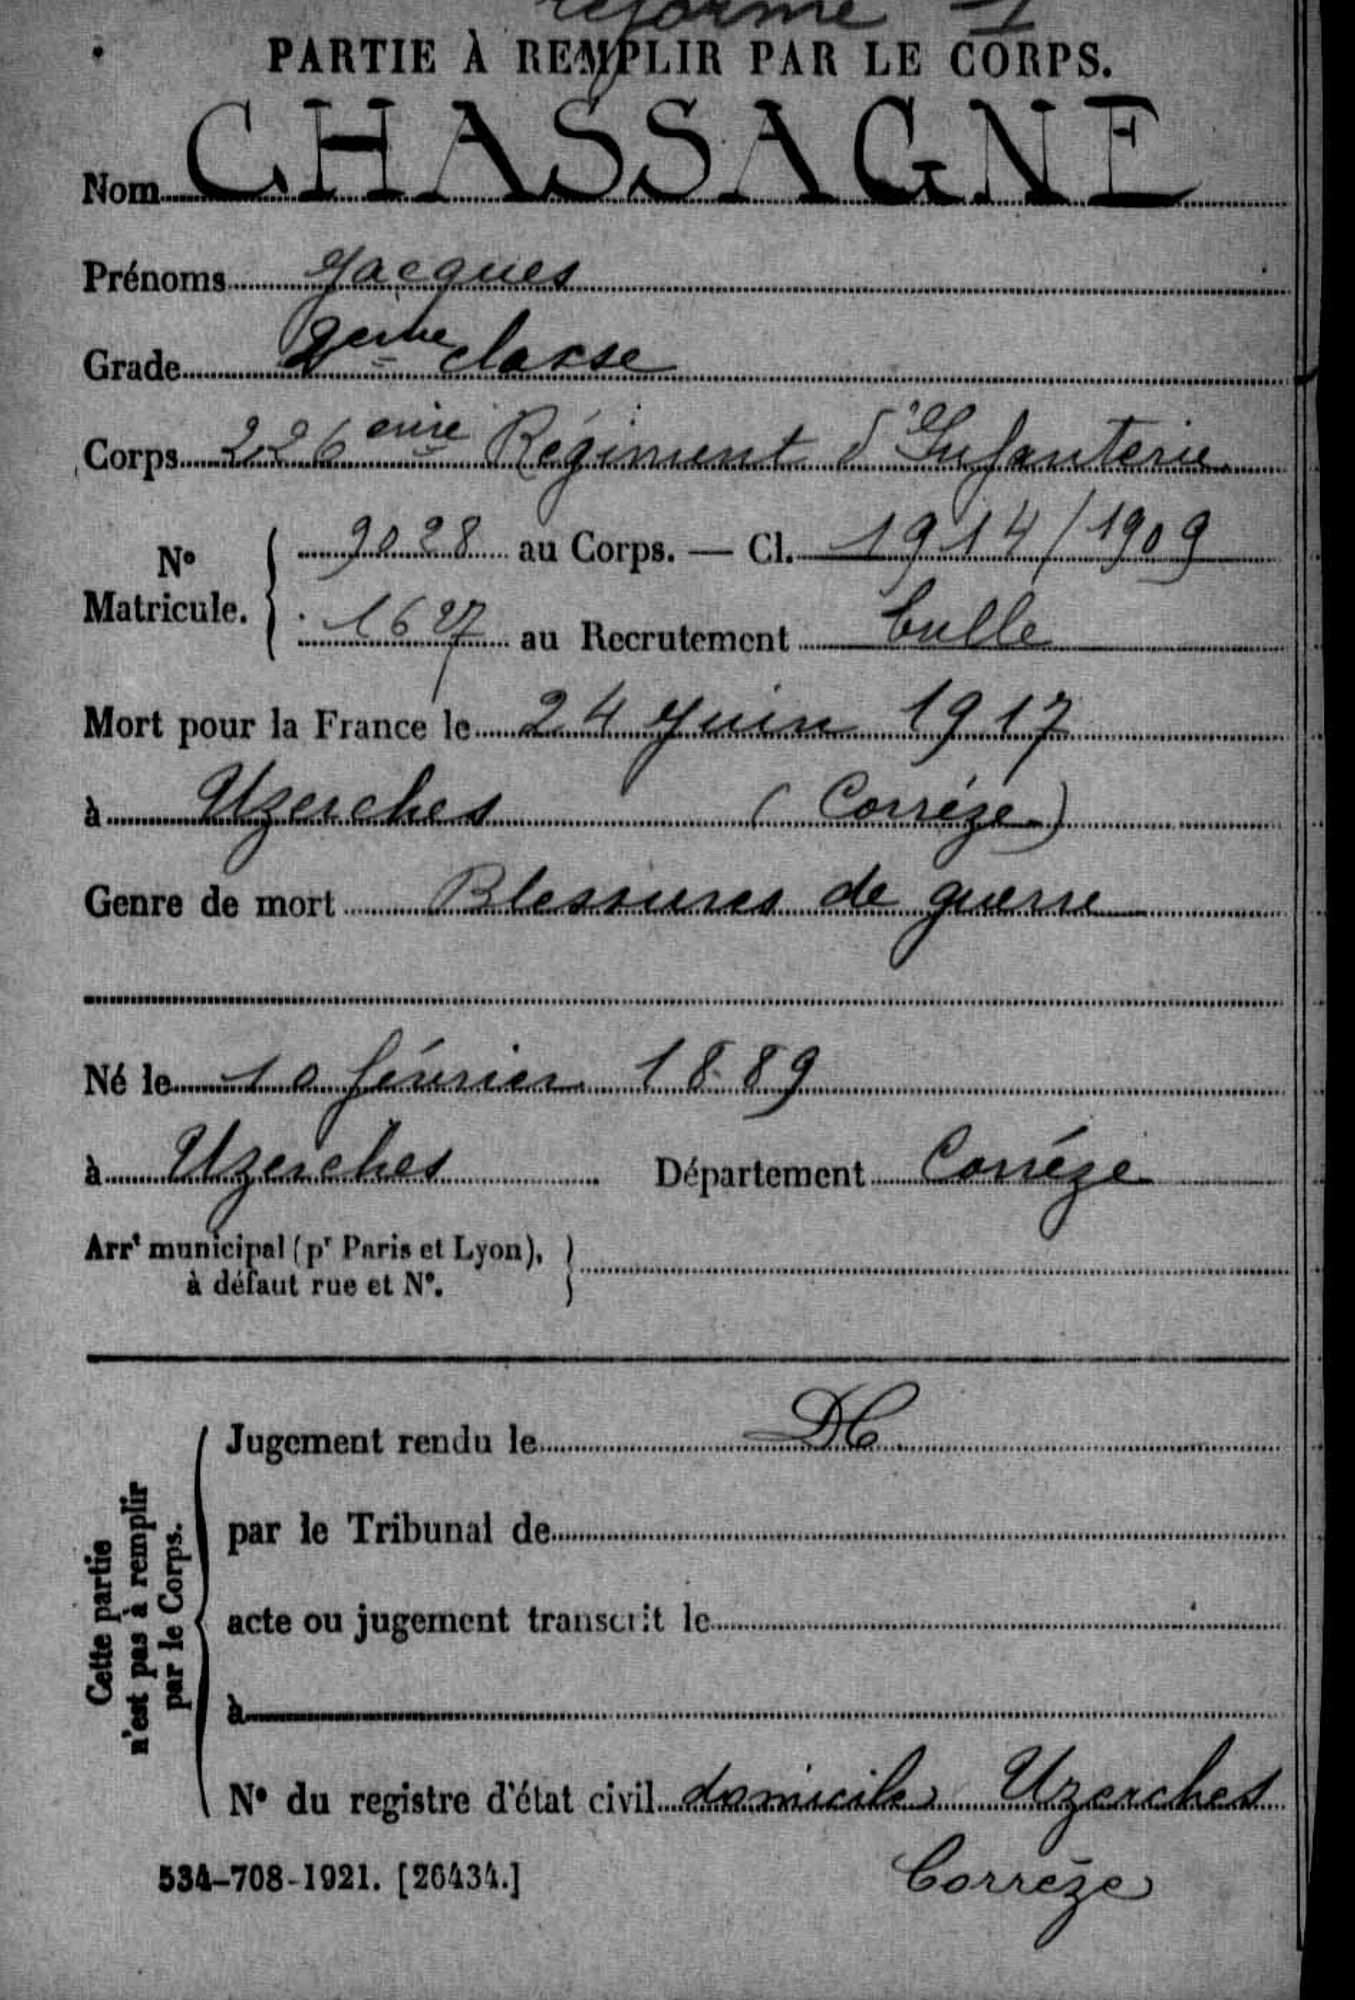 réforme 1
PARTIE À REMPLIR PAR LE CORPS.
Nom CHASSAGNE
Prénoms Jacques
Grade 2eme classe
Corps 226eme Régiment d'Infanterie
N° Matricule. 9028 au Corps. — Cl. 1914/1909
1627 au Recrutement Tulle
Mort pour la France le 24 Juin 1917
à Uzerches (Corrèze)
Genre de mort Blessures de guerre
Né le 10 février 1889
à Uzerches Département Corrèze
Arrt municipal (pr Paris et Lyon),
à défaut rue et N°.
Cette partie n'est pas à remplir par le Corps.
Jugement rendu le DC
par le Tribunal de
acte ou jugement transcrit le
à
N° du registre d'état civil domicile Uzerches
Corrèze
534-708-1921. [26434.]